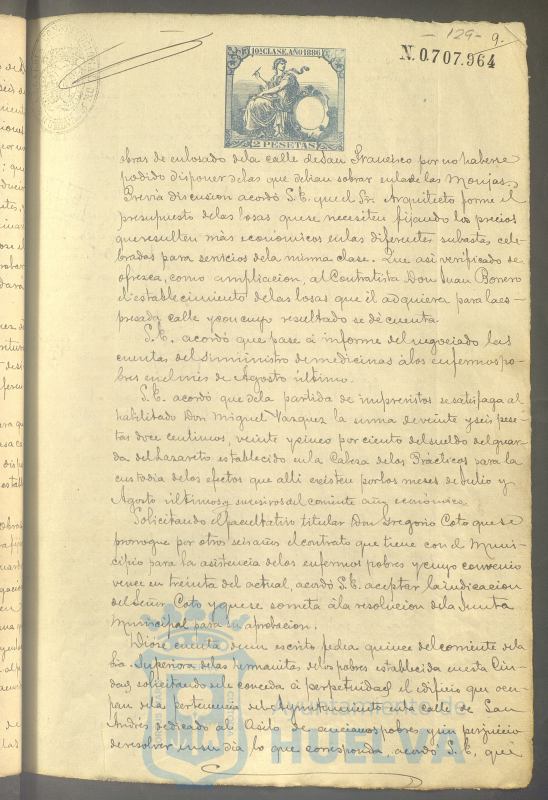 - 129 - 9.
N. 0.707.964
10ª CLASE, AÑO 1886
2 PESETAS
obras de enlosado de la calle de San Francisco por no haberse
podido disponer de las que debian sobrar en la de las Monjas.
Previa discusion acordó S.E. que el Sr. Arquitecto forme el
presupuesto de las losas que se necesiten fijando los precios
que resulten más económicos en las diferentes subastas cele-
bradas para servicios de la misma clase. Que asi verificado se
ofrezca, como ampliacion, al Contratista Don Juan Borrero
el establecimiento de las losas que él adquiera para la es-
presada calle y con cuyo resultado se dé cuenta.
S.E. acordó que pase á informe del negociado las
cuentas del suministro de medicinas á los enfermos po-
bres en el mes de Agosto último.
S.E. acordó que de la partida de imprevistos se satisfaga al
habilitado Don Miguel Vazquez la suma de veinte y seis pese-
tas doce centimos, veinte y cinco por ciento del sueldo del guar-
da del Lazareto establecido en la Cabeza de los Prácticos para la
custodia de los efectos que alli existen por los meses de Julio y
Agosto últimos y sucesivos del corriente año económico.
Solicitando el facultativo titular Don Gregorio Coto que se
prorrogue por otros seis años el contrato que tiene con el Muni-
cipio para la asistencia de los enfermos pobres y cuyo convenio
vence en treinta del actual, acordó S.E. aceptar la indicacion
del Señor Coto y que se someta á la resolucion de la Junta
Municipal para su aprobacion.
Dióse cuenta de un escrito fecha quince del corriente de la
Superiora de las hermanitas de los pobres establecida en esta Ciu-
dad solicitando se le conceda á perpetuidad el edificio que ocu-
pan de la pertenencia del Ayuntamiento en la calle de San
Andrés dedicado al Asilo de ancianos pobres, y sin perjuicio
de resolver en su dia lo que corresponda acordó S.E. que
Ayuntamiento de
HUELVA